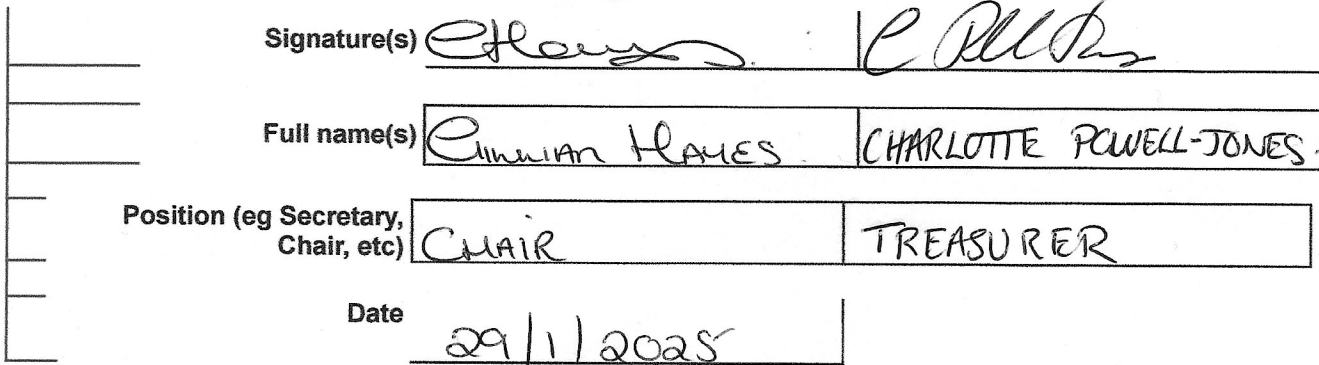 Signature(s)
Full name(s) Gillian Hayes CHARLOTTE POWELL-JONES.
Position (eg Secretary,
Chair, etc) CHAIR TREASURER
Date 29/1/2025